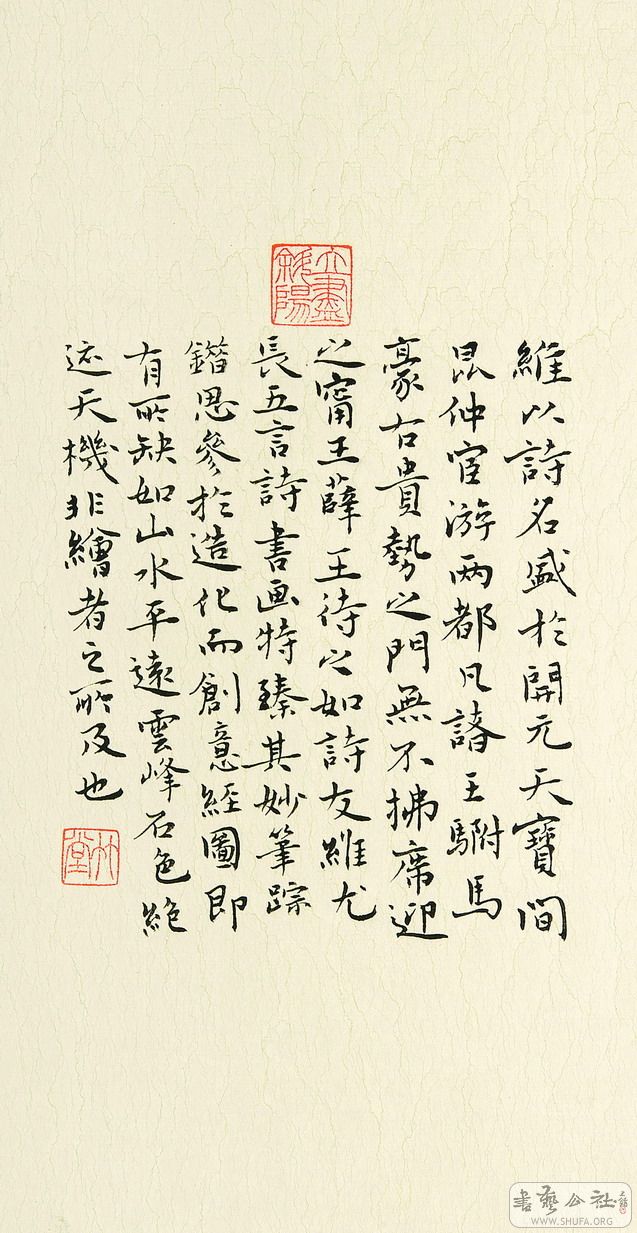 立盡斜陽
維以詩名盛於開元天寶間
昆仲宦游两都凡諸王駙馬
豪右貴勢之門無不拂席迎
之甯王薛王待之如詩友維尤
長五言詩書画特臻其妙筆踪
思參於造化而創意經圖即
有所缺如山水平遠雲峰石色絶
迹天機非繪者之所及也
書藝公社
WWW.SHUFA.ORG